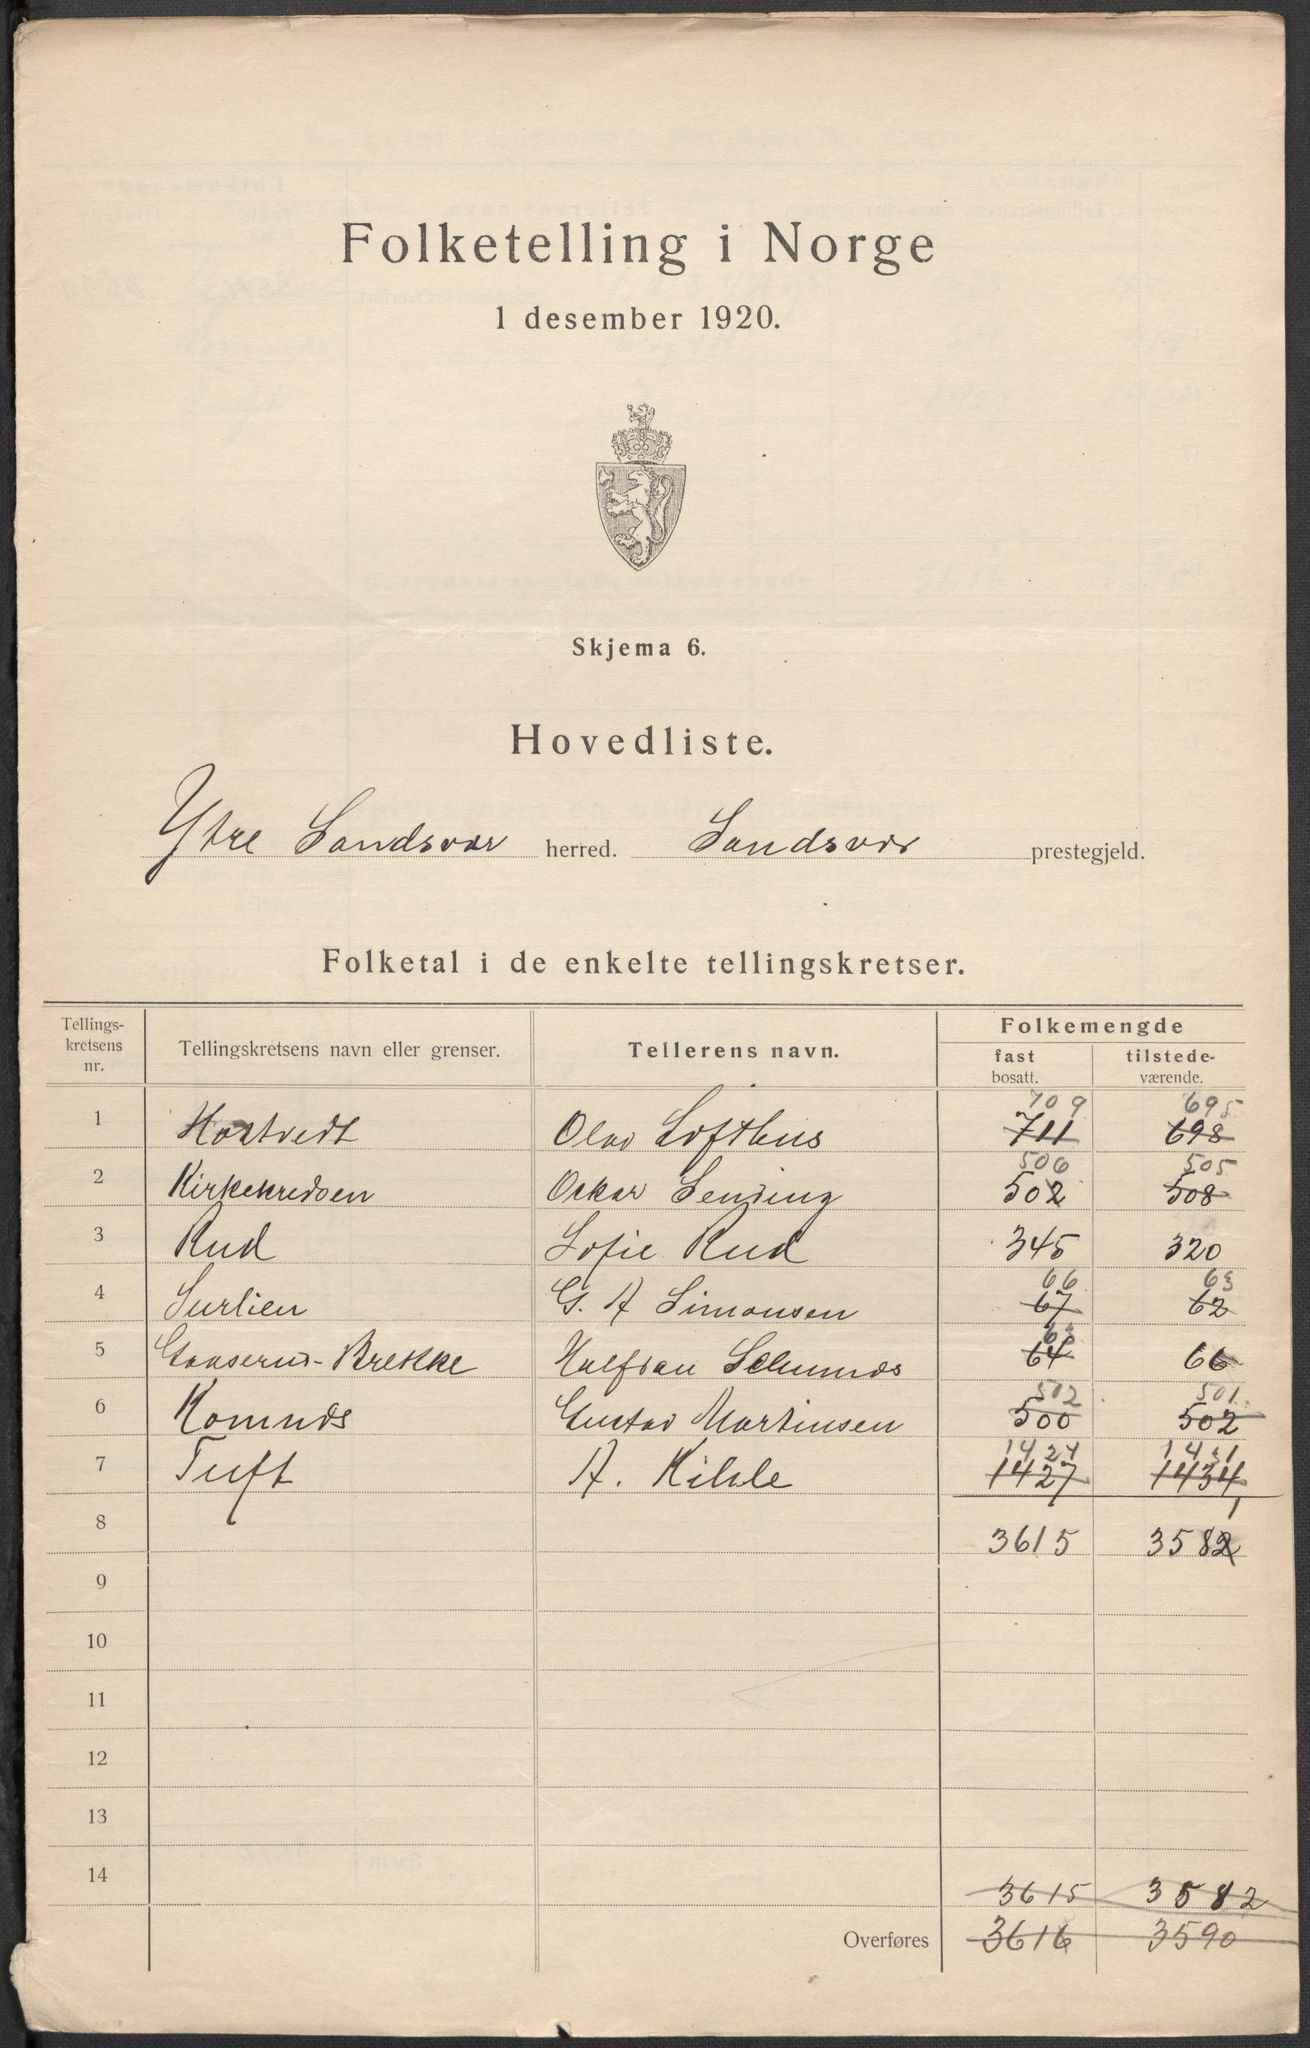 Folketelling i Norge
1 desember 1920.
Skjema 6.
Hovedliste.
Ytre Sandsvær herred. Sandsvær prestegjeld.
Folketal i de enkelte tellingskretser.
Tellings-
kretsens
nr.
Tellingskretsens navn eller grenser.
Tellerens navn.
Folkemengde
fast
bosatt.
tilstede-
værende.
709 695
1 Hostvedt Olav Lofthus 711 698
506 505
2 Kirkekredsen Oskar Sending 502 508
3 Rud Sofie Rud 345 320
66 63
4 Surlien G. A Simonsen 67 62
63
5 Gaaserud-Brekke Halfdan 64 66
502 501
6 Komnds Gustav Martinsen 500 502
1424 1431
7 Tuft A. Kihle 1427 1434
1
8 3615 3582
9
10
11
12
13
14
3615 3582
Overføres 3616 3590